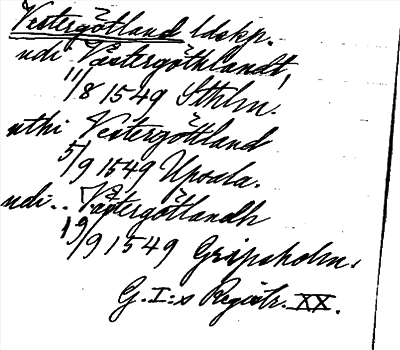 Vestergötland ldskp.
udi Västergöthlandt,
11/8 1549 Sthlm.
uthi Vestergöttland
5/9 1549 Upsala.
udi.. Västergötlandh
19/9 1549 Gripsholm.
G. I:s Registr. XX.